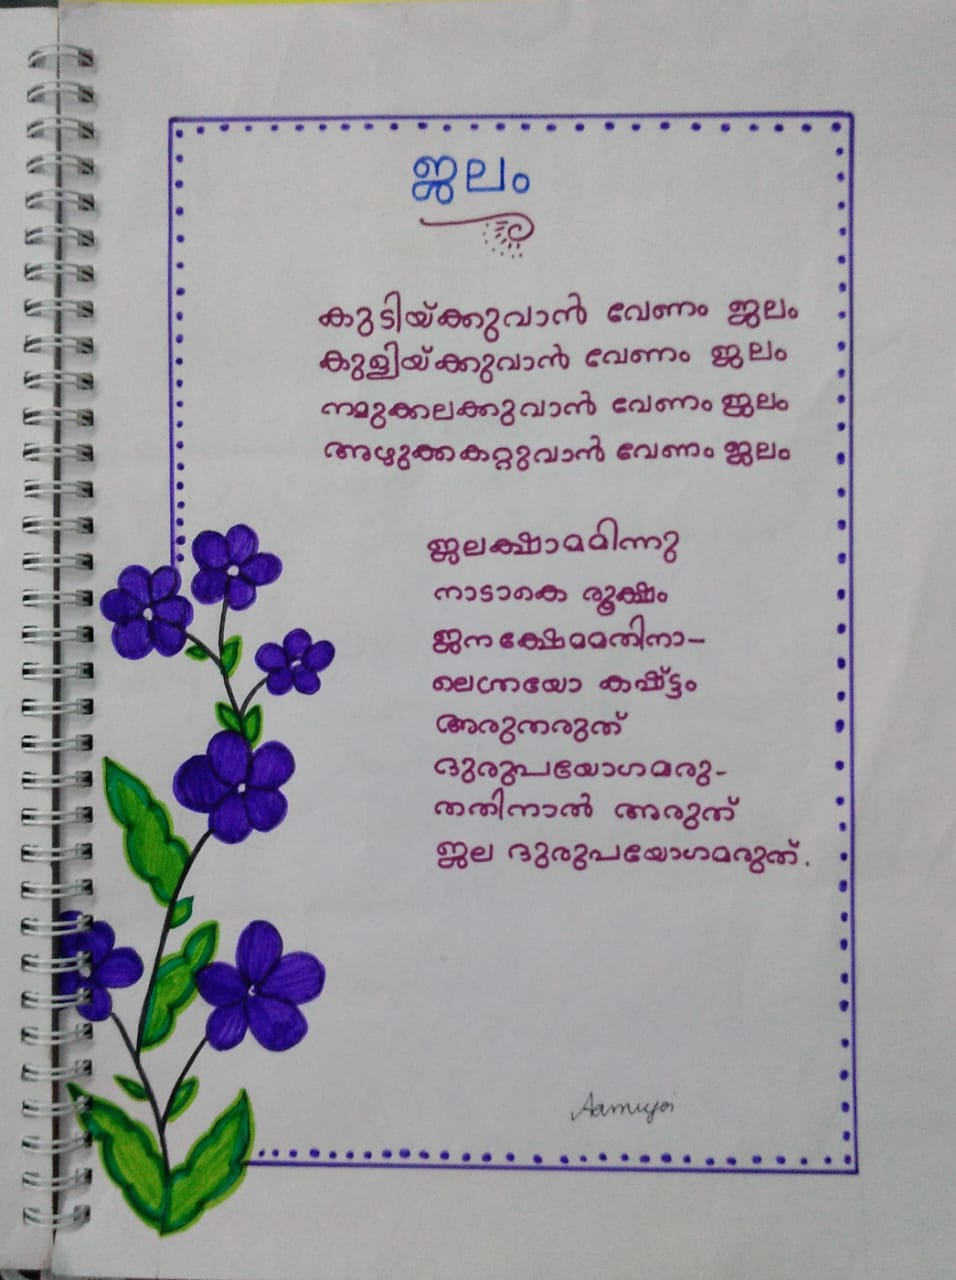 ജലം
കുടിയ്ക്കുവാൻ വേണം ജലം
കുളിയ്ക്കുവാൻ വേണം ജലം
നമുക്കലക്കുവാൻ വേണം ജലം
അഴുക്കകറ്റുവാൻ വേണം ജലം
ജലക്ഷാമമിന്നു
നാടാകെ രൂക്ഷം
ജനക്ഷേമമതിനാ-
ലെത്രയോ കഷ്ട്ടം
അരുതരുത്
ദുരുപയോഗമരു-
തതിനാൽ അരുത്
ജല ദുരുപയോഗമരുത്.